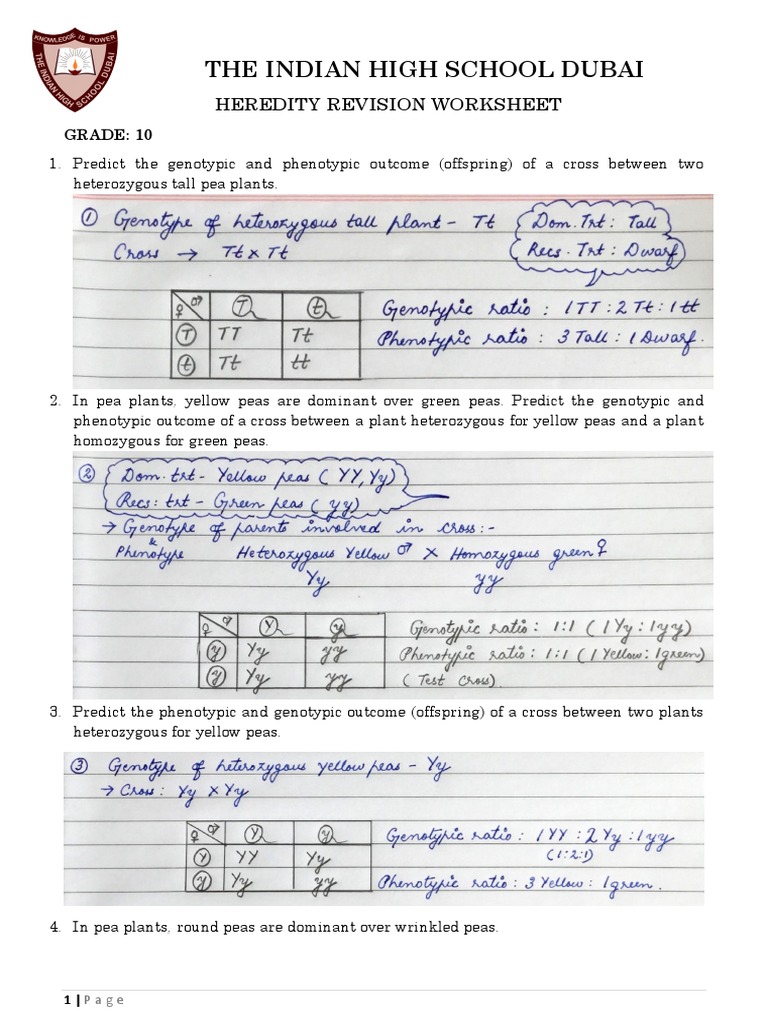 KNOWLEDGE IS POWER
THE INDIAN HIGH SCHOOL DUBAI
THE INDIAN HIGH SCHOOL DUBAI
HEREDITY REVISION WORKSHEET
GRADE: 10
1. Predict the genotypic and phenotypic outcome (offspring) of a cross between two
heterozygous tall pea plants.
① Genotype of heterozygous tall plant - Tt
Dom. Trt : Tall
Cross → Tt x Tt
Recs. Trt : Dwarf
♀ ♂ T t
Genotypic ratio : 1TT : 2 Tt : 1 tt
T TT Tt
Phenotypic ratio : 3 Tall : 1 Dwarf.
t Tt tt
2. In pea plants, yellow peas are dominant over green peas. Predict the genotypic and
phenotypic outcome of a cross between a plant heterozygous for yellow peas and a plant
homozygous for green peas.
② Dom. trt - Yellow peas ( YY, Yy)
Recs: trt - Green peas ( yy)
→ Genotype of parents involved in cross:-
&
Phenotype Heterozygous Yellow ♂ X Homozygous green ♀
Yy yy
♀ ♂ Y y
Genotypic ratio : 1:1 ( 1 Yy : 1yy)
y Yy yy
Phenotypic ratio : 1:1 ( 1 Yellow : 1green)
y Yy yy
( Test Cross).
3. Predict the phenotypic and genotypic outcome (offspring) of a cross between two plants
heterozygous for yellow peas.
③ Genotype of heterozygous yellow peas - Yy
→ Cross : Yy x Yy
♀ ♂ Y y
Genotypic ratio : 1 YY : 2 Yy : 1yy
Y YY Yy
(1:2:1)
y Yy yy
Phenotypic ratio : 3 Yellow : 1green.
4. In pea plants, round peas are dominant over wrinkled peas.
1 | Page